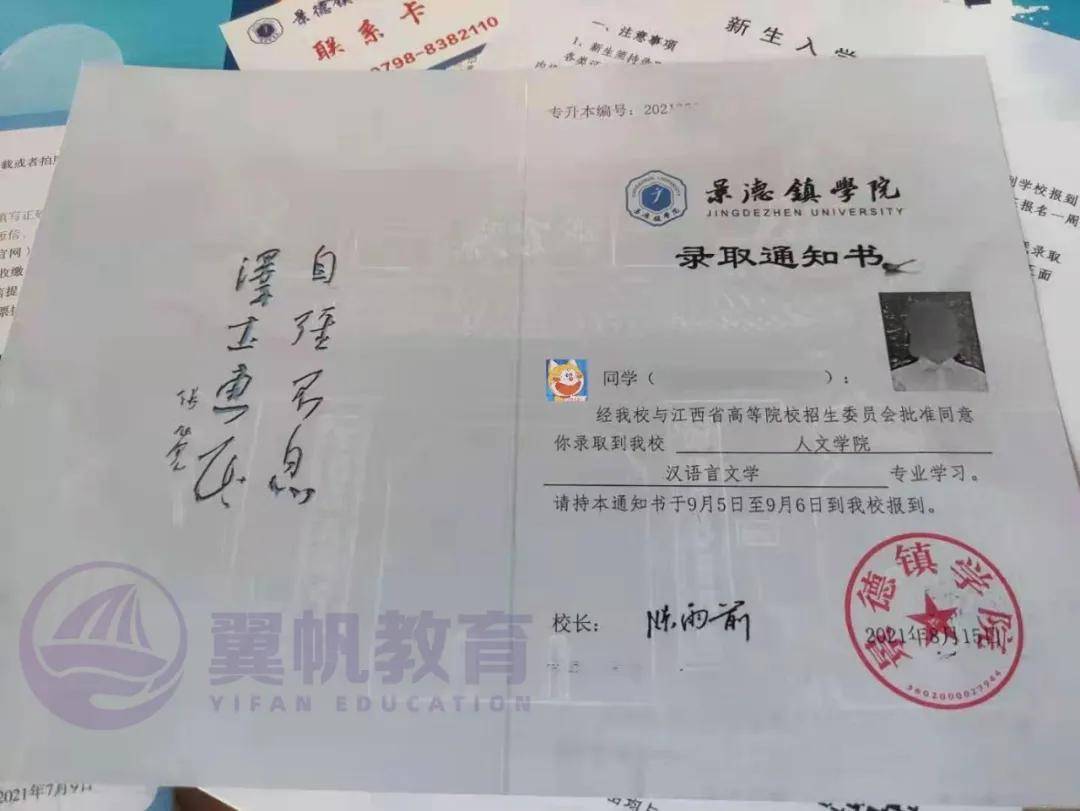 景德镇
联系卡
0798-8382110
一、注意事项
新生入学
专升本编号：2021
景德鎮學院
JINGDEZHEN UNIVERSITY
录取通知书
自强不息
泽土惠民
同学（ ）：
经我校与江西省高等院校招生委员会批准同意
你录取到我校 人文学院
汉语言文学 专业学习。
请持本通知书于9月5日至9月6日到我校报到。
校长： 陈雨前
景德镇学院
2021年8月15日
3602000027944
翼帆教育
YIFAN EDUCATION
载或者拍
填写正
官网）
收缴
学校报到
报名一周
录取
2021年7月9日